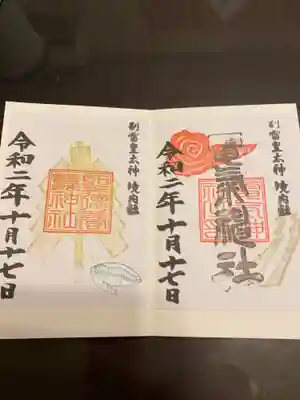 別雷皇太神 境内社
電氣神社
令和二年十月十七日
別雷皇太神 境内社
令和二年十月十七日